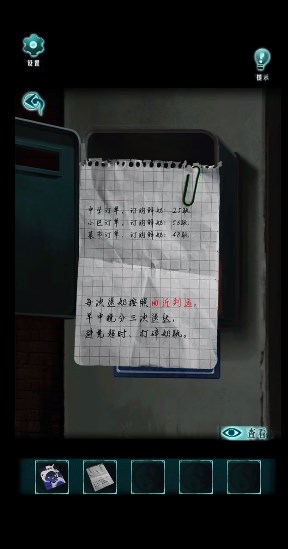 设置
提示
中学订单，订购鲜奶：25瓶
小区订单，订购鲜奶：50瓶
菜市订单，订购鲜奶：40瓶
每次送奶按照由近到远，
早中晚分三次送达，
避免超时、打碎奶瓶。
查看